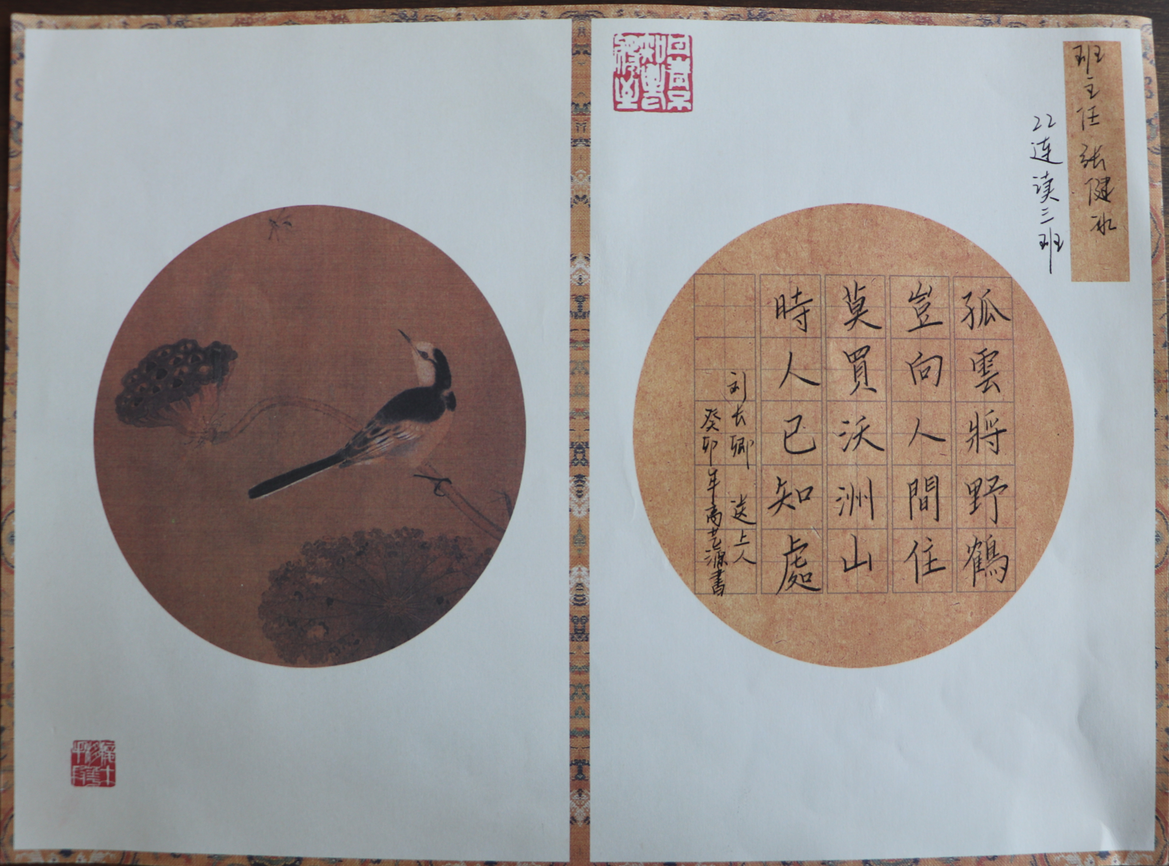 班主任 张健冰
22连读三班
孤雲將野鶴
豈向人間住
莫買沃洲山
時人已知處
刘长卿 送上人
癸卯年高芸源書